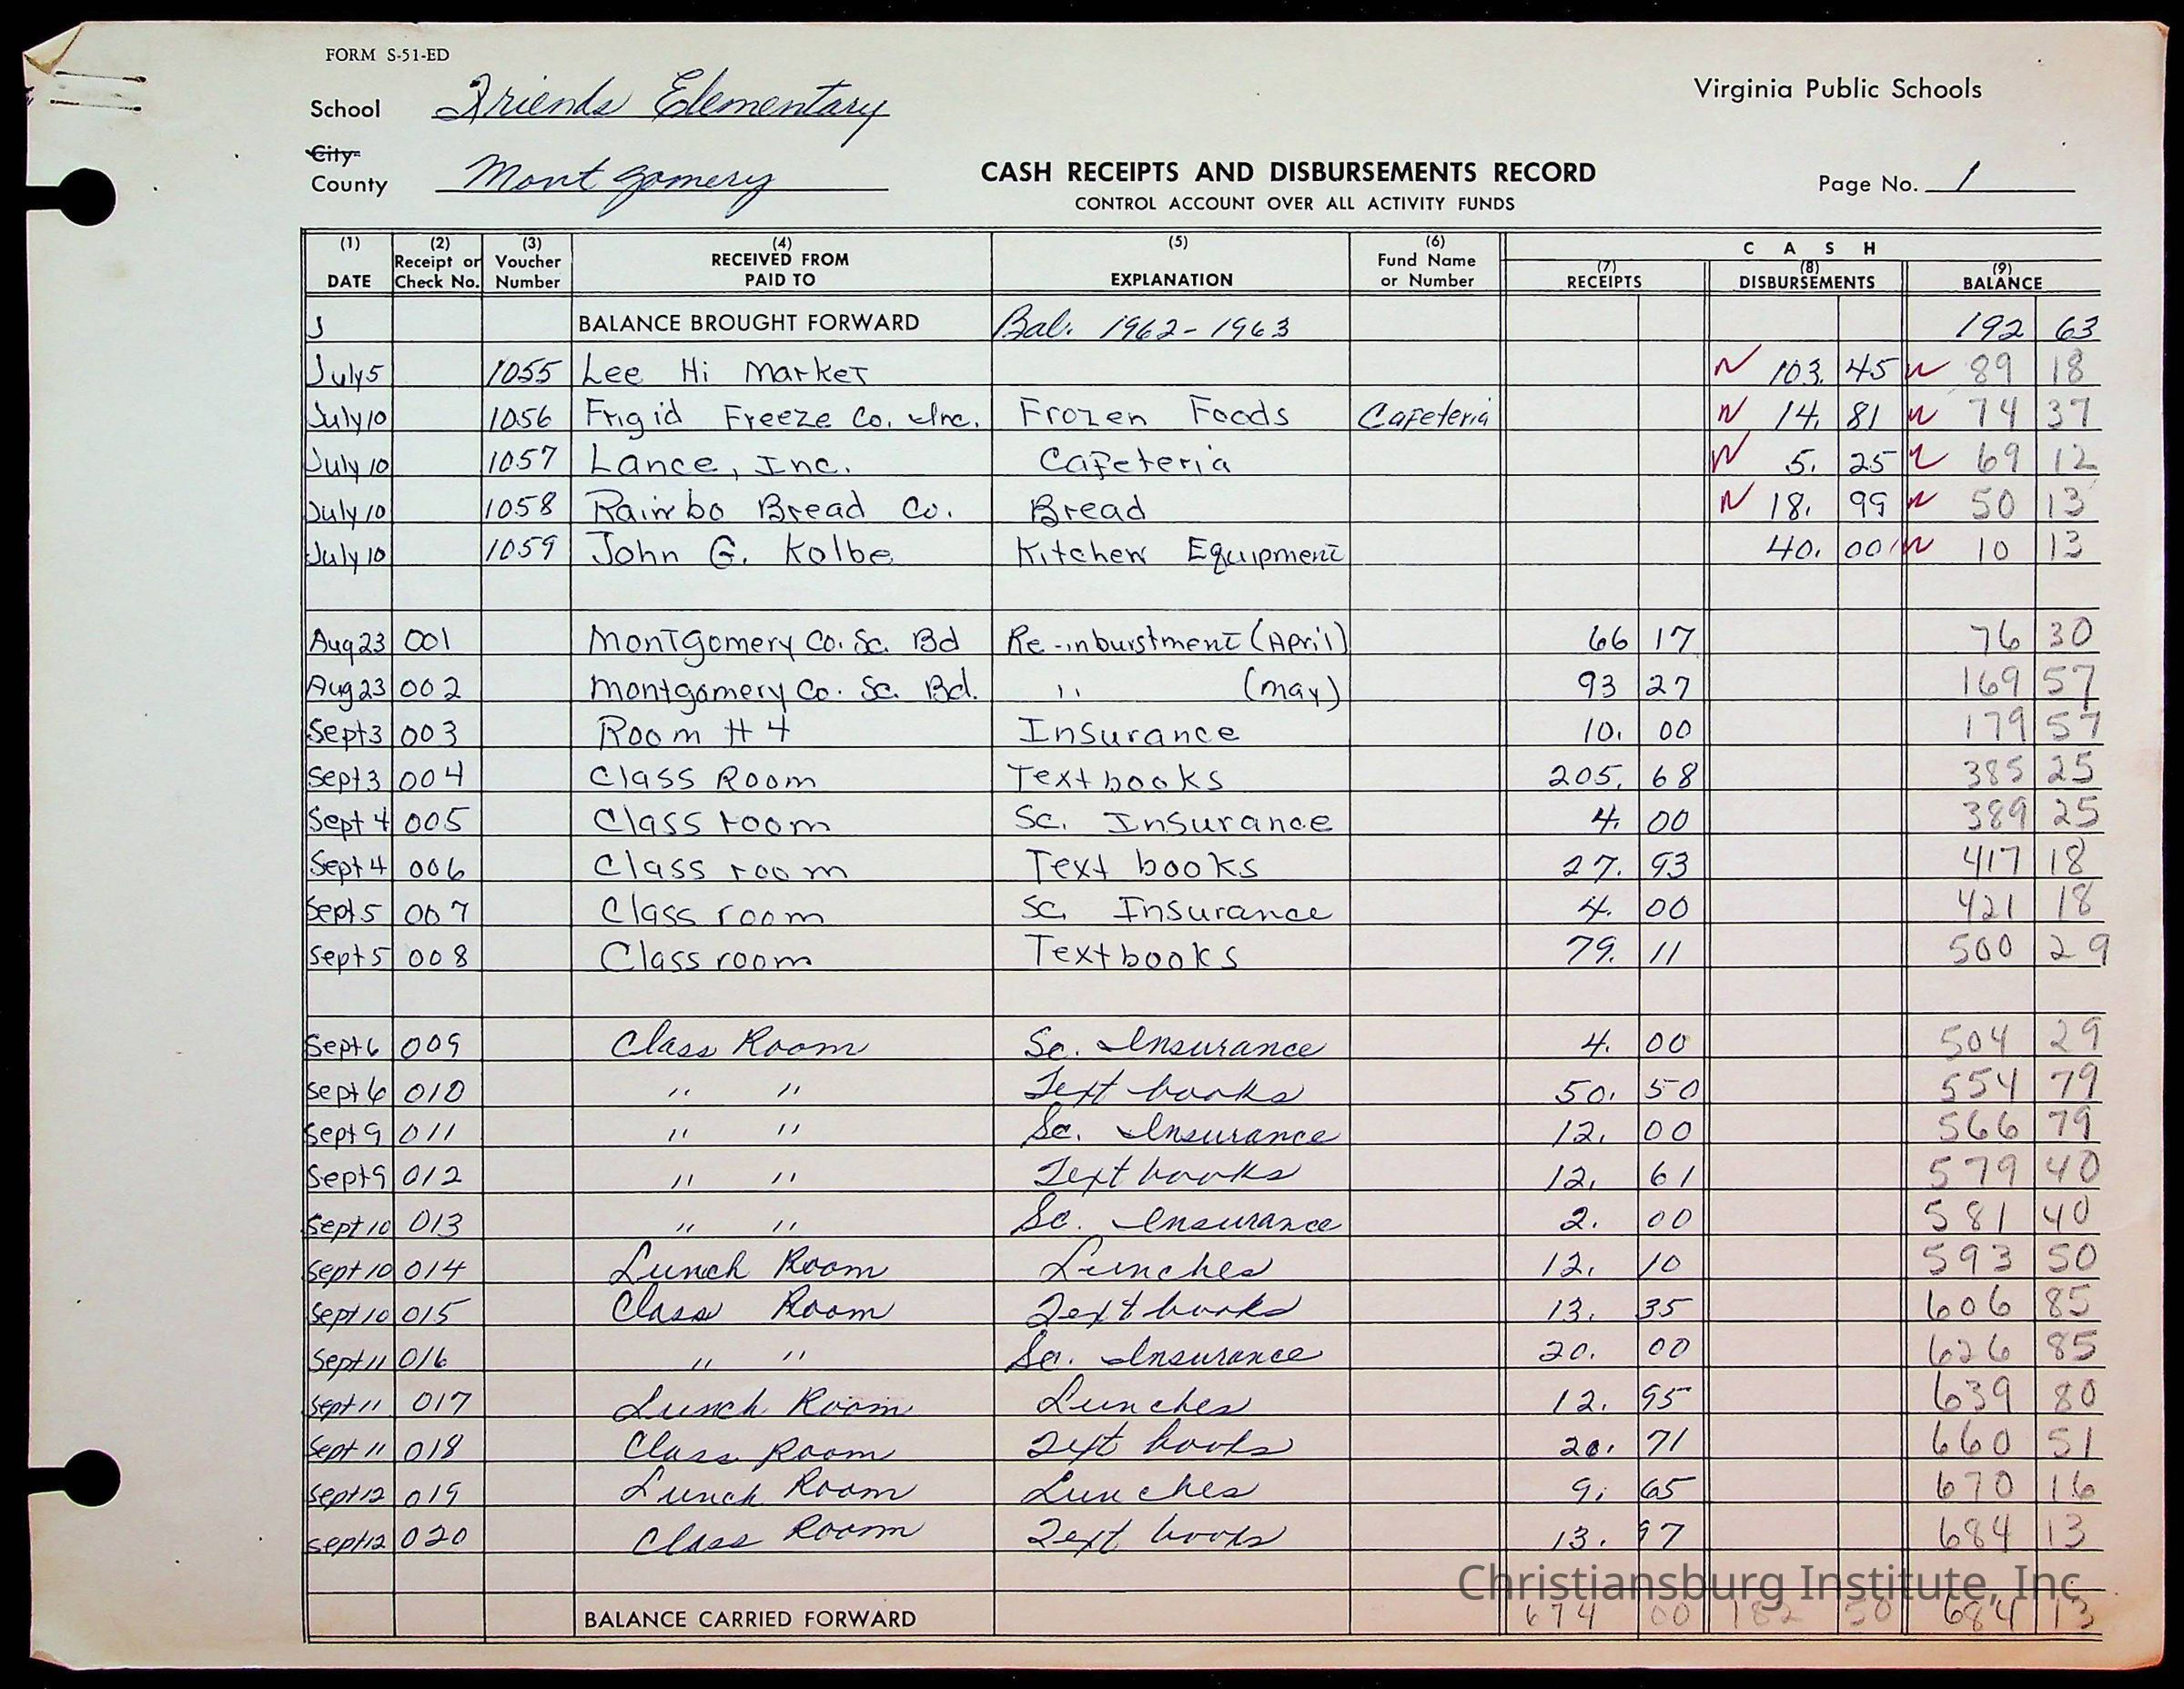 FORM S-51-ED
School Friends Elementary
Virginia Public Schools
City
County Montgomery
CASH RECEIPTS AND DISBURSEMENTS RECORD
Page No. 1
CONTROL ACCOUNT OVER ALL ACTIVITY FUNDS
(1) DATE (2) Receipt or Check No. (3) Voucher Number (4) RECEIVED FROM PAID TO (5) EXPLANATION (6) Fund Name or Number CASH (7) RECEIPTS (8) DISBURSEMENTS (9) BALANCE
J BALANCE BROUGHT FORWARD Bal. 1962-1963 192 63
July 5 1055 Lee Hi Market 103. 45 89 18
July 10 1056 Frigid Freeze Co. Inc. Frozen Foods Cafeteria 14. 81 74 37
July 10 1057 Lance, Inc. Cafeteria 5. 25 69 12
July 10 1058 Rainbo Bread Co. Bread 18. 99 50 13
July 10 1059 John G. Kolbe Kitchen Equipment 40. 00 10 13
Aug 23 001 Montgomery Co. Sc. Bd Re-inburstment (April) 66 17 76 30
Aug 23 002 Montgomery Co. Sc. Bd. " (may) 93 27 169 57
Sept 3 003 Room # 4 Insurance 10. 00 179 57
Sept 3 004 Class Room Textbooks 205. 68 385 25
Sept 4 005 Class room Sc. Insurance 4. 00 389 25
Sept 4 006 Class room Text books 27. 93 417 18
Sept 5 007 Class room Sc. Insurance 4. 00 421 18
Sept 5 008 Class room Textbooks 79. 11 500 29
Sept 6 009 Class Room Sc. Insurance 4. 00 504 29
Sept 6 010 " " Text books 50. 50 554 79
Sept 9 011 " " Sc. Insurance 12. 00 566 79
Sept 9 012 " " Text books 12. 61 579 40
Sept 10 013 " " Sc. Insurance 2. 00 581 40
Sept 10 014 Lunch Room Lunches 12. 10 593 50
Sept 10 015 Class Room Text books 13. 35 606 85
Sept 11 016 " " Sc. Insurance 20. 00 626 85
Sept 11 017 Lunch Room Lunches 12. 95 639 80
Sept 11 018 Class Room Text books 20. 71 660 51
Sept 12 019 Lunch Room Lunches 9. 65 670 16
Sept 12 020 Class Room Text books 13. 97 684 13
Christiansburg Institute, Inc
BALANCE CARRIED FORWARD 674 00 182 50 684 13